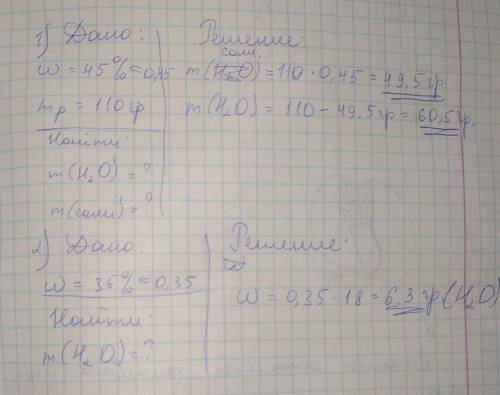 1) Дано:
w = 45% = 0,45
mр = 110 гр
Найти:
m(H₂O) = ?
m(соли) = ?
Решение:
соли
m(H₂O) = 110 · 0,45 = 49,5 гр
m(H₂O) = 110 - 49,5 гр = 60,5 гр.
2) Дано:
w = 35% = 0,35
Найти:
m(H₂O) = ?
Решение:
w = 0,35 · 18 = 6,3 гр (H₂O)